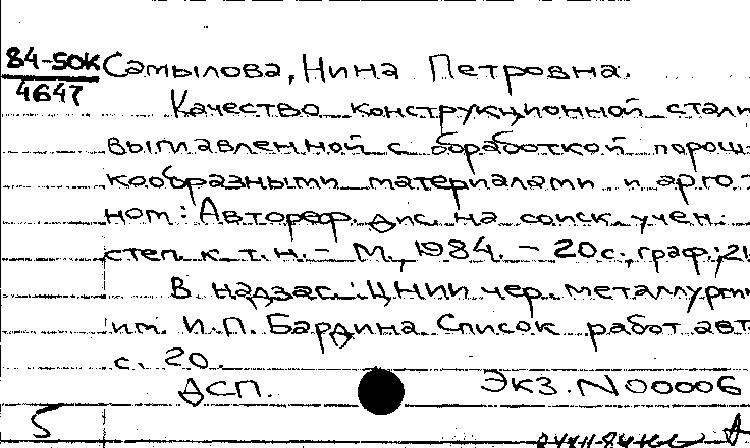 84-5ОК Самылова, Нина Петровна.
4647
Качество конструкционной стали
выплавленной с обработкой порош
кообразными материалами и арго
ном: Автореф. дис. на соиск. учен.
степ. к. т. н. - М., 1984. - 20 с., граф.; 21
В надзаг.: ЦНИИ чер. металлургии
им. И.П. Бардина. Список работ авт
с. 20.
ДСП. Экз. N 00006
5 А